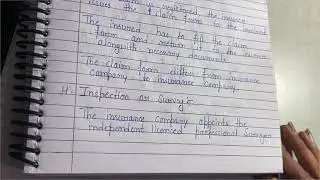 claim is registered the insurer
issues the claim form to the insured
The insured has to fill the claim
form and return it to the insurer
alongwith necessary documents.
The claim form differs from insurance
company to insurance company.
4. Inspection or Survey:-
The insurance company appoints the
independent licenced professional Surveyor